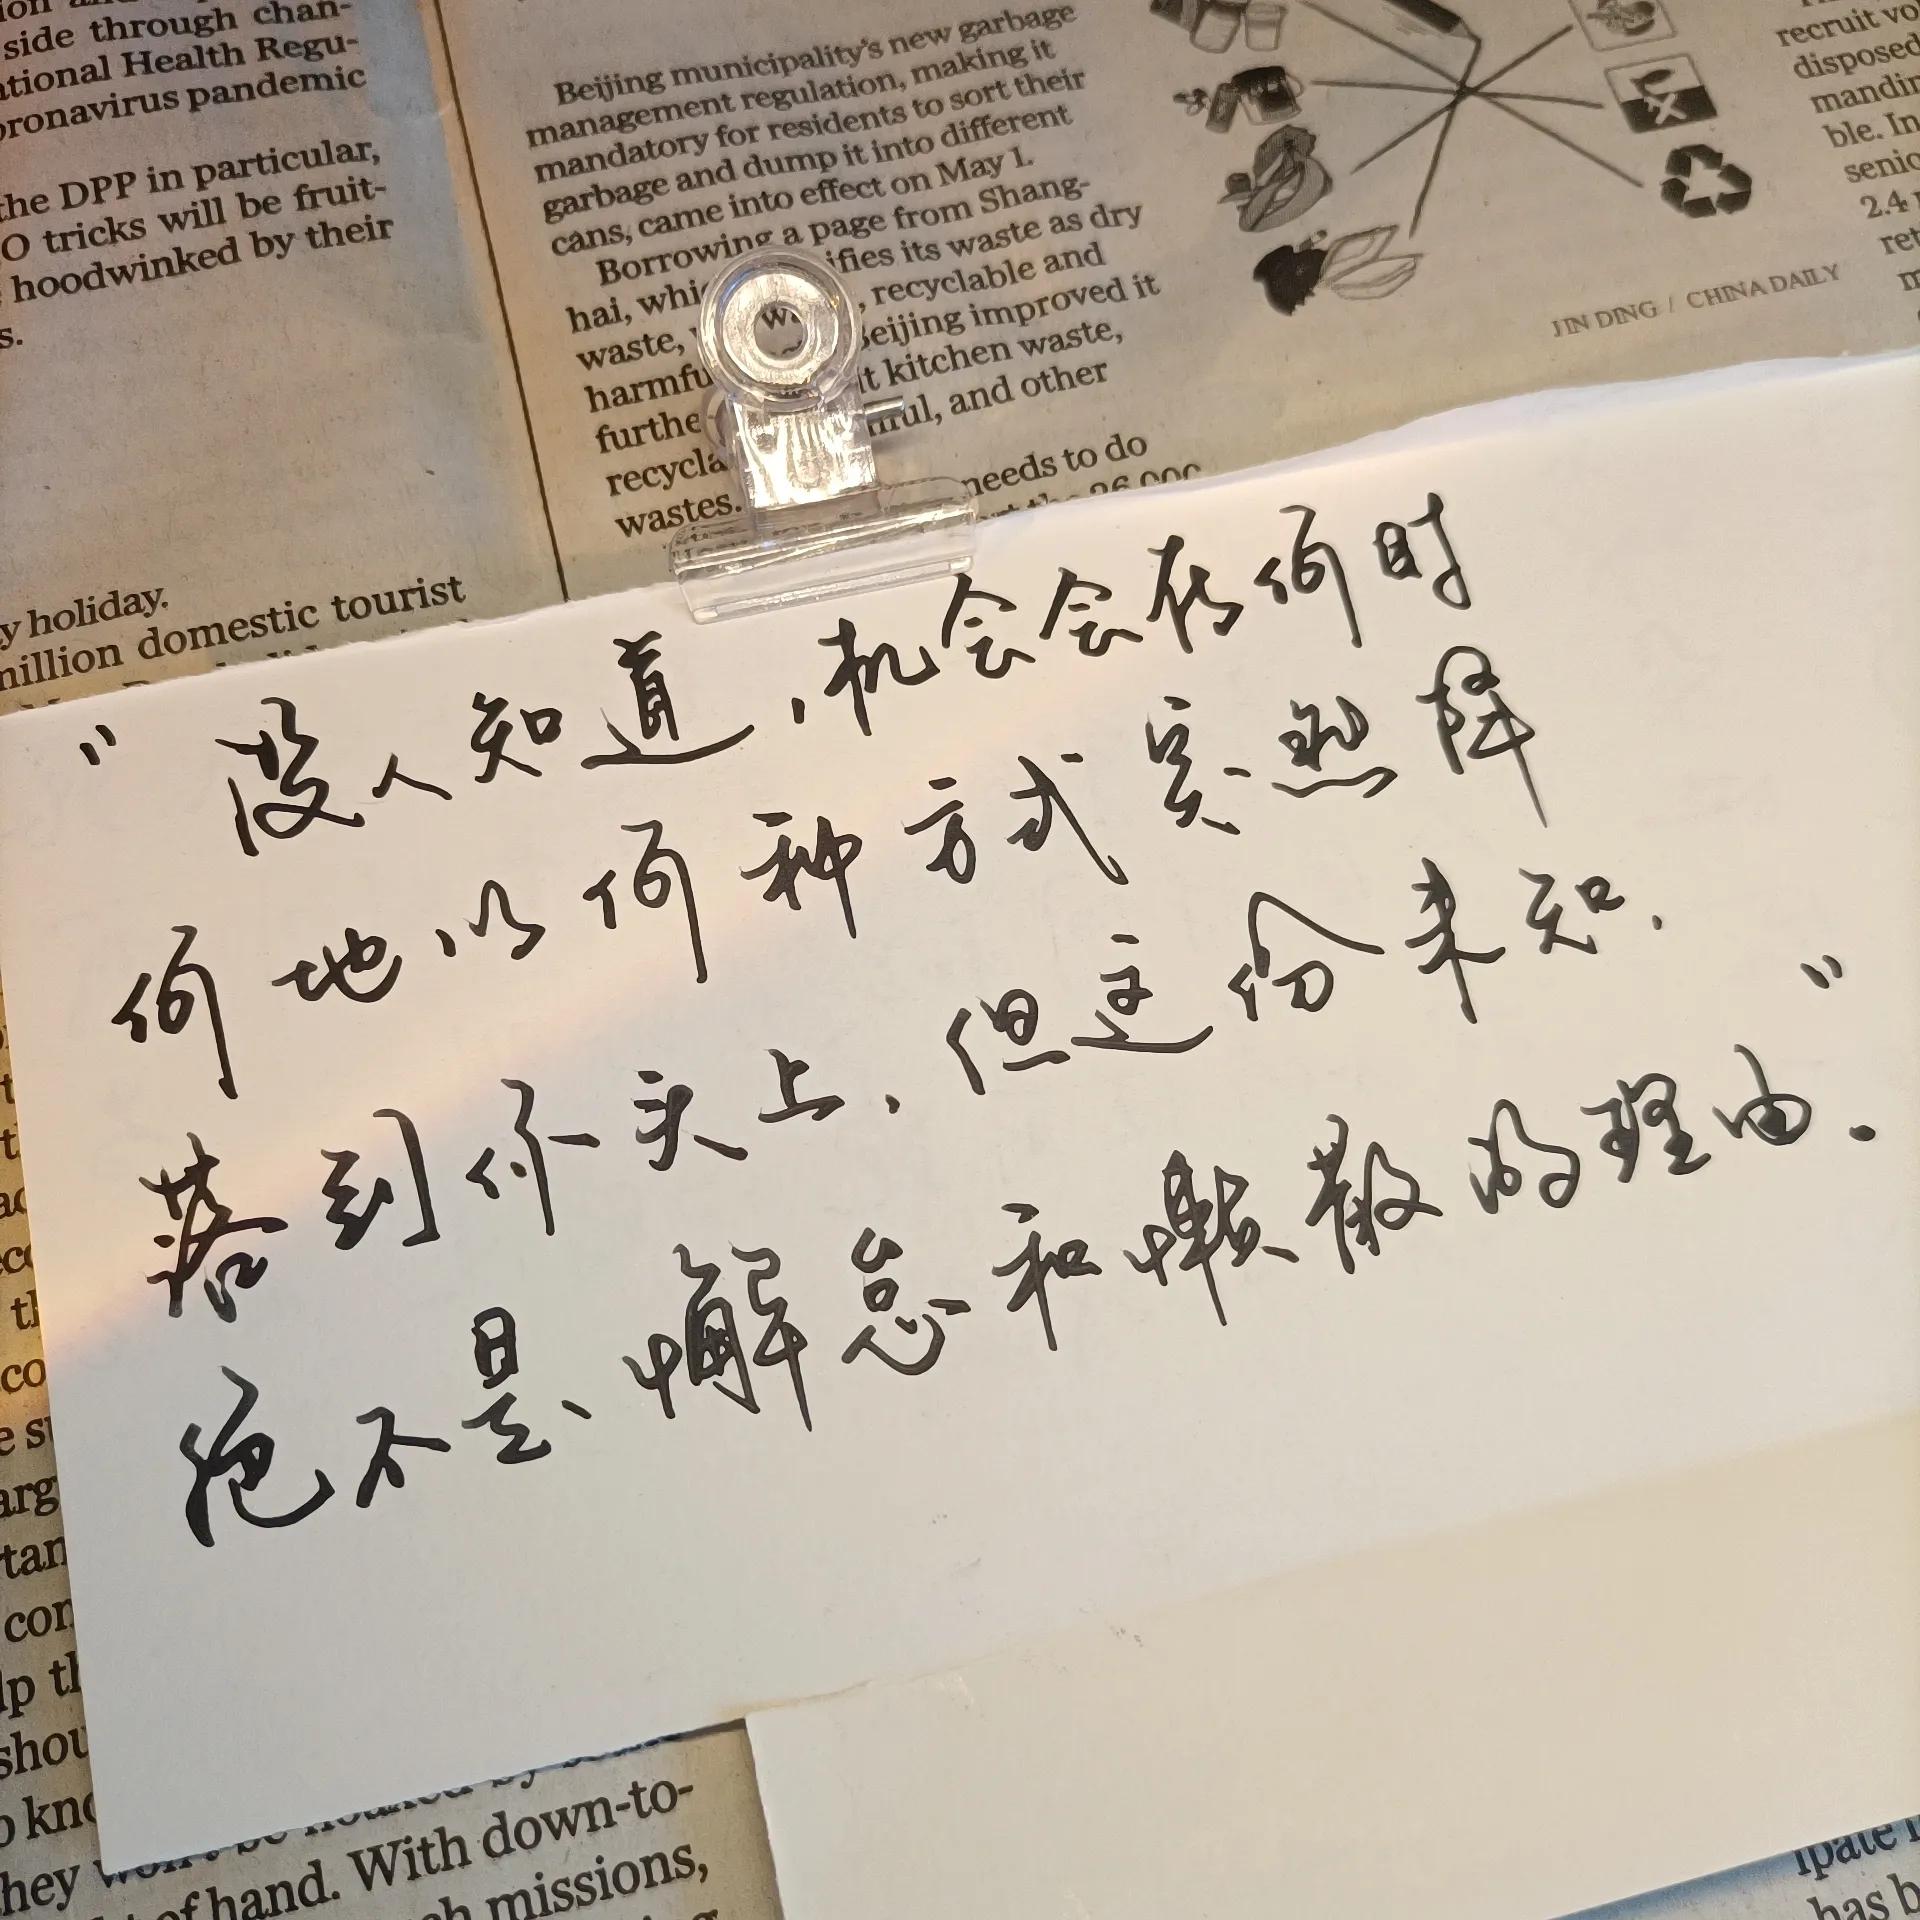 side through chan-
ational Health Regu-
oronavirus pandemic
the DPP in particular,
O tricks will be fruit-
hoodwinked by their
s.
y holiday.
million domestic tourist
Beijing municipality's new garbage
management regulation, making it
mandatory for residents to sort their
garbage and dump it into different
cans, came into effect on May 1.
Borrowing a page from Shang-
hai, whi ifies its waste as dry
waste, w , recyclable and
harmfu Beijing improved it
furthe t kitchen waste,
recycla mful, and other
wastes. needs to do
26,000
JIN DING / CHINA DAILY
recruit vo
disposed
mandin
ble. In
senio
2.4
ret
"没人知道，机会会在何时
何地以何种方式突然降
落到你头上，但这份未知，
绝不是懈怠和懒散的理由。"
co
e su
arg
tan
con
lp th
shou
o kno
they won't be
of hand. With down-to-
h missions,
ipate
has b